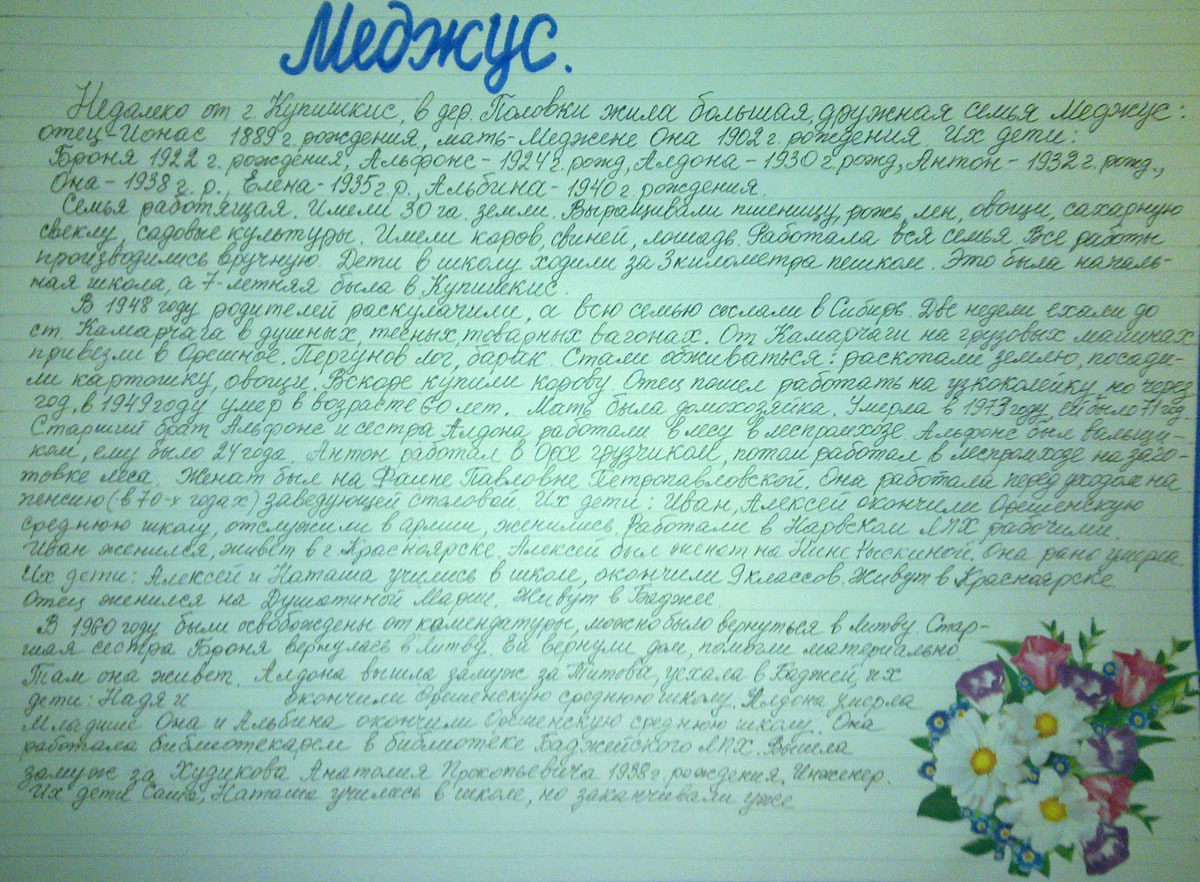 Меджус.
Недалеко от г. Купишкис, в дер. Половки жила большая, дружная семья Меджус:
отец-Ионас 1889 г. рождения, мать-Меджене Она 1902 г. рождения Их дети:
Броня 1922 г. рождения, Альфонс-1924 г. рожд, Алдона-1930 г рожд, Антон-1932 г. рожд.,
Она-1938 г. р., Елена-1935 г р., Альбина-1940 г рождения.
Семья работящая. Имели 30 га. земли. Выращивали пшеницу, рожь, лен, овощи, сахарную
свеклу, садовые культуры. Имели коров, свиней, лошадь. Работала вся семья. Все работы
производились вручную. Дети в школу ходили за 3 километра пешком. Это была началь-
ная школа, а 7-летняя была в Купишкис.
В 1948 году родителей раскулачили, а всю семью сослали в Сибирь. Две недели ехали до
ст. Камарчага в душных, тесных, товарных вагонах. От Камарчаги на грузовых машинах
привезли в Орешное. Пергунов лог, барак. Стали обживаться: раскопали землю, посади-
ли картошку, овощи. Вскоре купили корову. Отец пошел работать на узкоколейку, но через
год, в 1949 году умер в возрасте 60 лет. Мать была домохозяйка. Умерла в 1973 году, ей было 71 год.
Старший брат Альфонс и сестра Алдона работали в лесу в леспромхозе. Альфонс был вальщи-
ком, ему было 24 года. Антон работал в Орсе грузчиком, потом работал в леспромхозе на заго-
товке леса. Женат был на Фаине Павловне Петропавловской. Она работала перед уходом на
пенсию (в 70-х годах) заведующей столовой. Их дети: Иван, Алексей окончили Орешенскую
среднюю школу, отслужили в армии, женились. Работали в Нарвском ЛПХ рабочими.
Иван женился, живет в г Красноярске. Алексей был женат на Нине Рыскиной. Она рано умерла.
Их дети: Алексей и Наташа учились в школе, окончили 9 классов. Живут в Красноярске.
Отец женился на Душатиной Марии. Живут в Баджее.
В 1960 году были освобождены от комендатуры, можно было вернуться в Литву. Стар-
шая сестра Броня вернулась в Литву. Ей вернули дом, помогли материально.
Там она живет. Алдона вышла замуж за Титова, уехала в Баджей, их
дети: Надя и окончили Орешенскую среднюю школу. Алдона умерла.
Младшие Она и Альбина окончили Орешенскую среднюю школу. Она
работала библиотекарем в библиотеке Баджейского ЛПХ. Вышла
замуж за Худикова Анатолия Прокопьевича 1938 г. рождения. Инженер.
Их дети Саша, Наташа учились в школе, но заканчивали уже